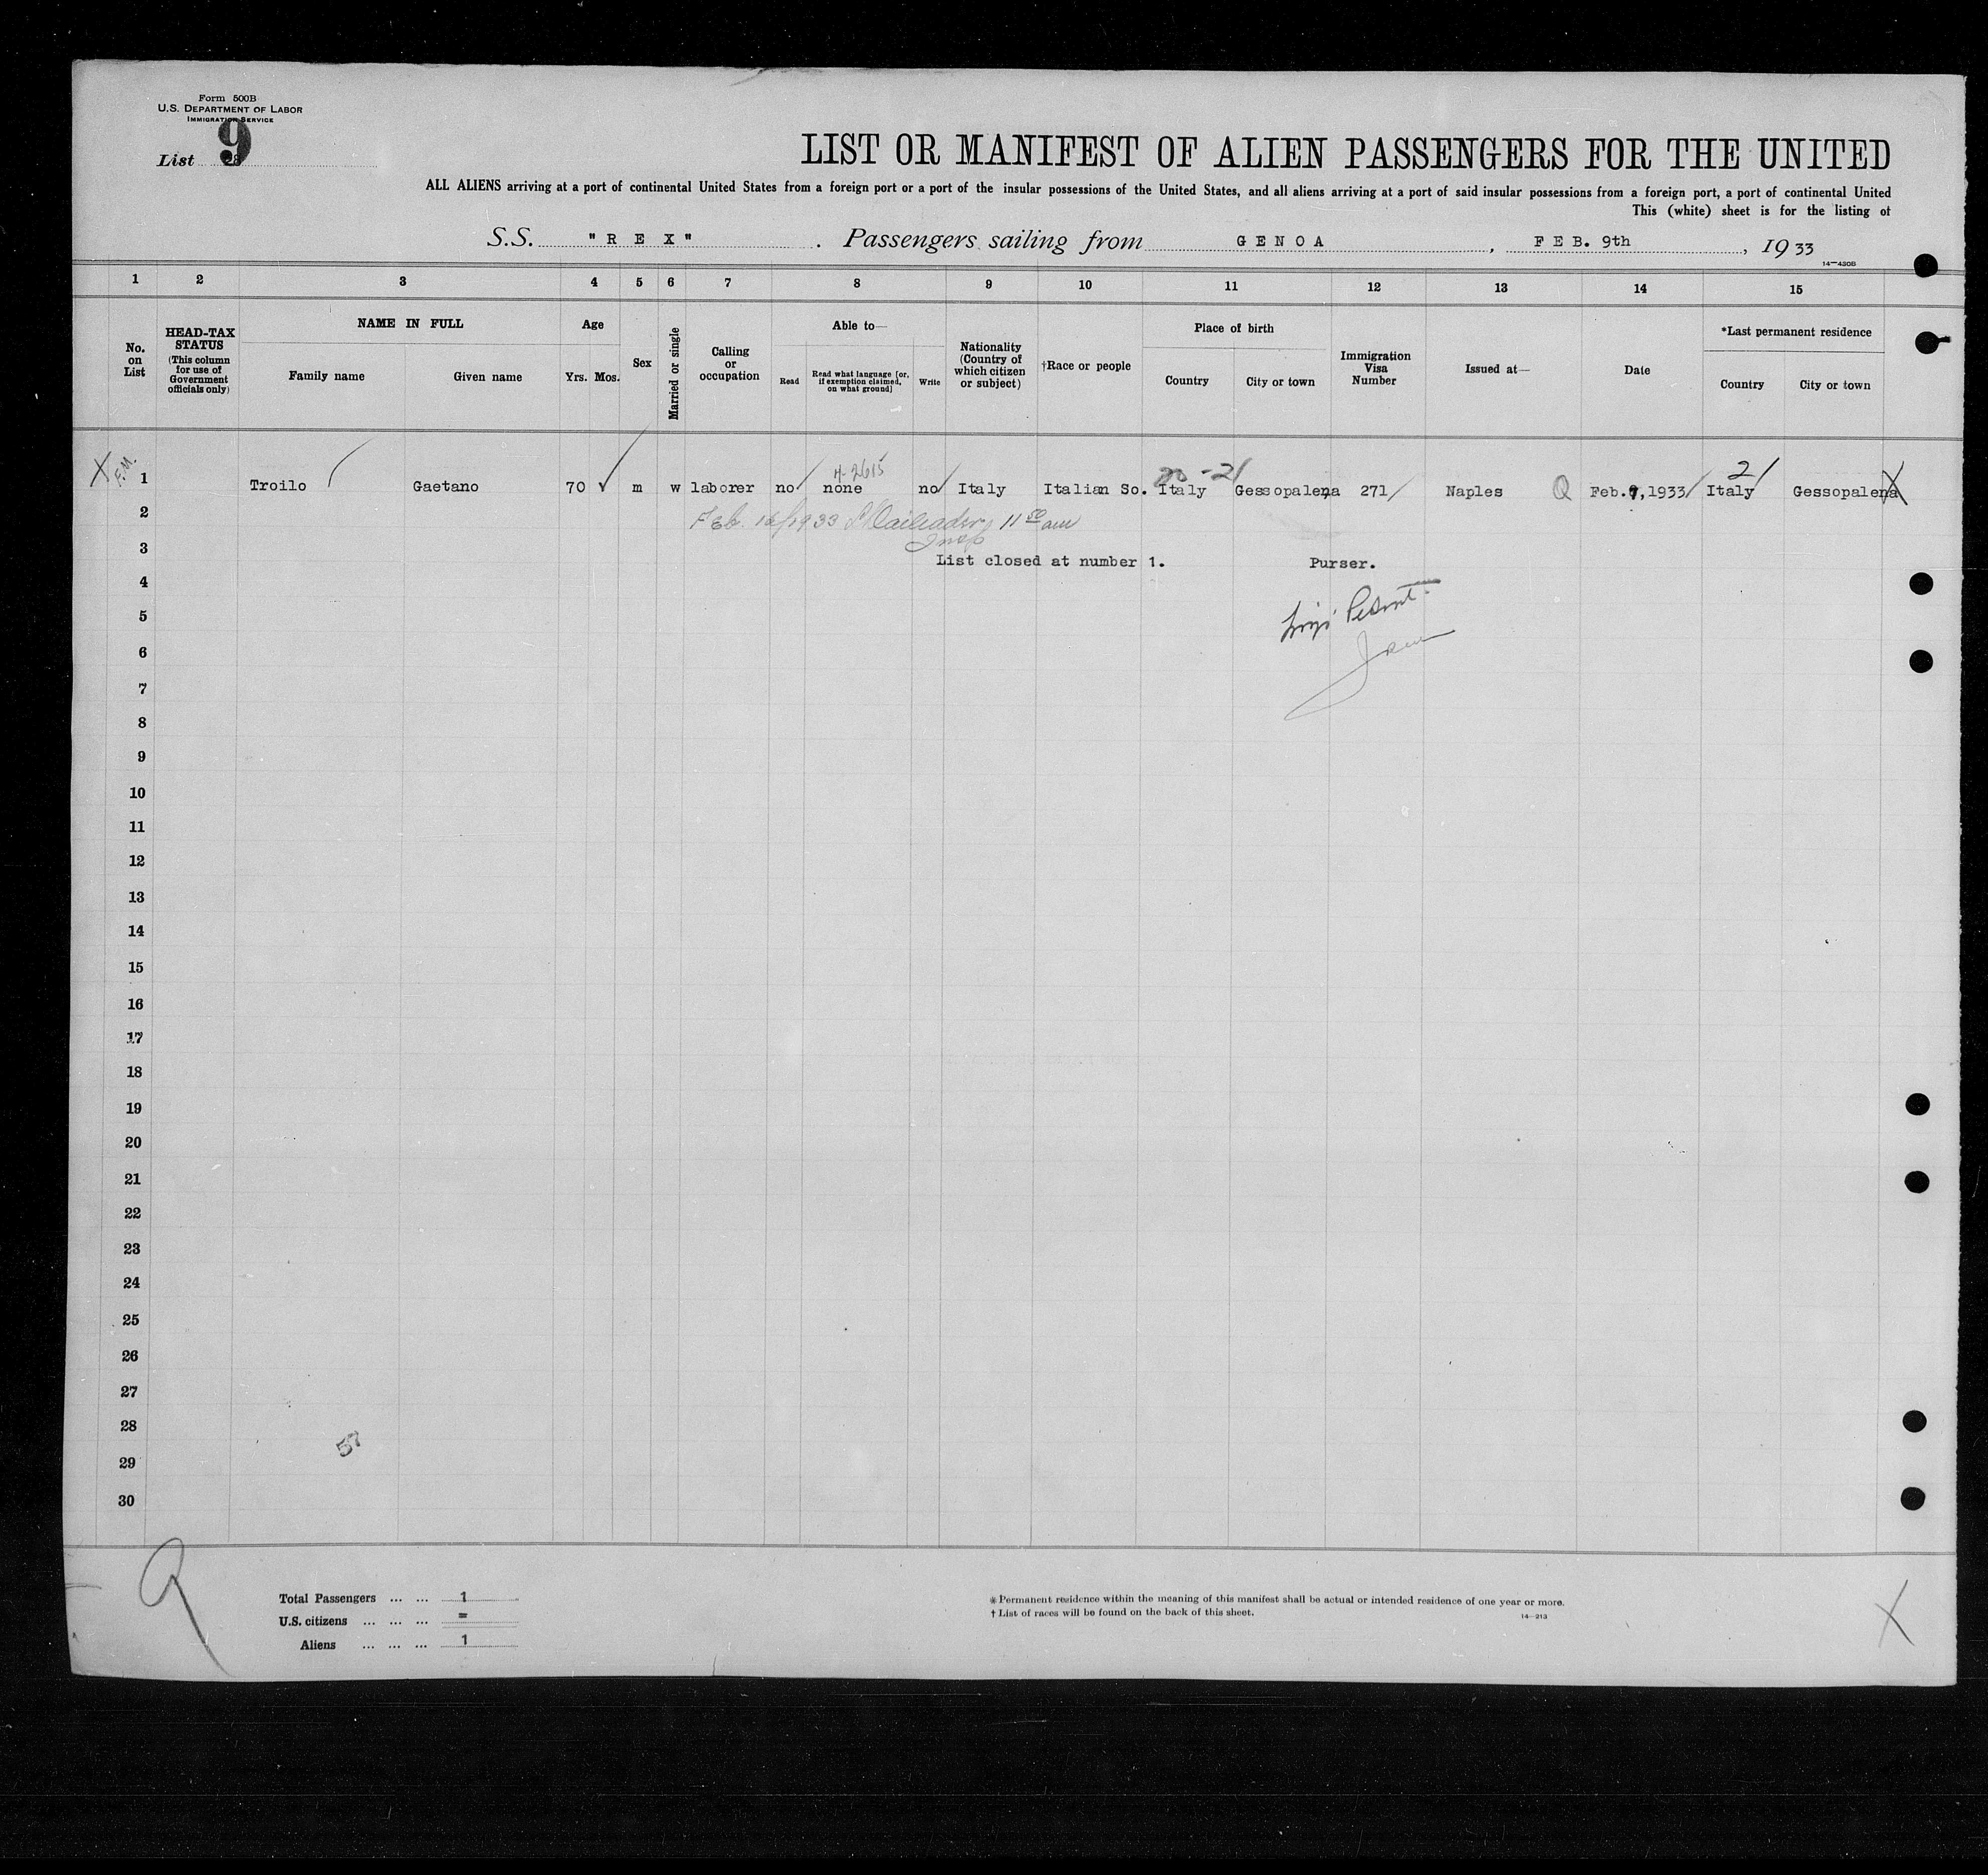 Form 500B
U.S. DEPARTMENT OF LABOR
IMMIGRATION SERVICE
List 9
LIST OR MANIFEST OF ALIEN PASSENGERS FOR THE UNITED
ALL ALIENS arriving at a port of continental United States from a foreign port or a port of the insular possessions of the United States, and all aliens arriving at a port of said insular possessions from a foreign port, a port of continental United
This (white) sheet is for the listing of
S.S. "REX". Passengers sailing from GENOA, FEB. 9th, 1933
14—430B
1 2 3 4 5 6 7 8 9 10 11 12 13 14 15
No. on List
HEAD-TAX STATUS (This column for use of Government officials only)
NAME IN FULL
Family name Given name
Age
Yrs. Mos.
Sex
Married or single
Calling or occupation
Able to—
Read
Read what language [or, if exemption claimed, on what ground]
Write
Nationality (Country of which citizen or subject)
†Race or people
Place of birth
Country City or town
Immigration Visa Number
Issued at—
Date
*Last permanent residence
Country City or town
X F.M. 4-2615 -21 21
1 Troilo Gaetano 70 √ m w laborer no none no Italy Italian So. Italy Gessopalena 271 Naples Q Feb.7,1933 Italy Gessopalena X
2 Feb. 16/1933 11 50 am
Insp
3 List closed at number 1. Purser.
4
5 Luigi
6
7
8
9
10
11
12
13
14
15
16
17
18
19
20
21
22
23
24
25
26
27
28
57
29
30
9
Total Passengers ... ... 1
U.S. citizens ... ... ... =
Aliens ... ... ... 1
* Permanent residence within the meaning of this manifest shall be actual or intended residence of one year or more.
† List of races will be found on the back of this sheet.
14—213
X